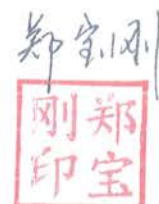 郑宝刚
郑宝刚印